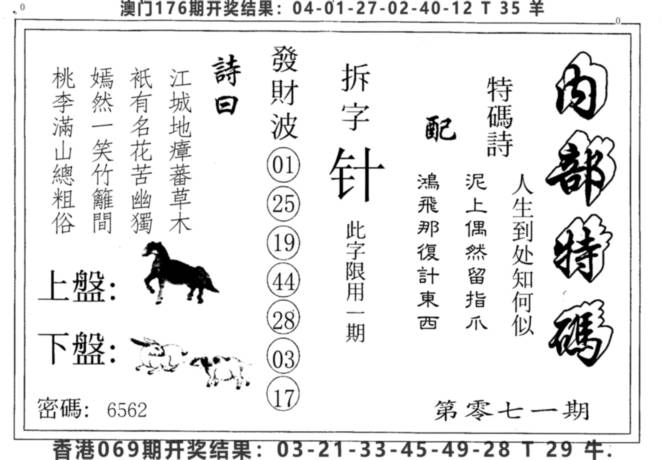 澳门176期开奖结果：04-01-27-02-40-12 T 35 羊
内部特碼
特碼詩
人生到处知何似
泥上偶然留指爪
鴻飛那復計東西
配
拆字
针
此字限用一期
發財波
01
25
19
44
28
03
17
詩曰
江城地瘴蕃草木
衹有名花苦幽獨
嫣然一笑竹籬間
桃李滿山總粗俗
上盤：
下盤：
密碼：6562
第零七一期
香港069期开奖结果：03-21-33-45-49-28 T 29 牛.